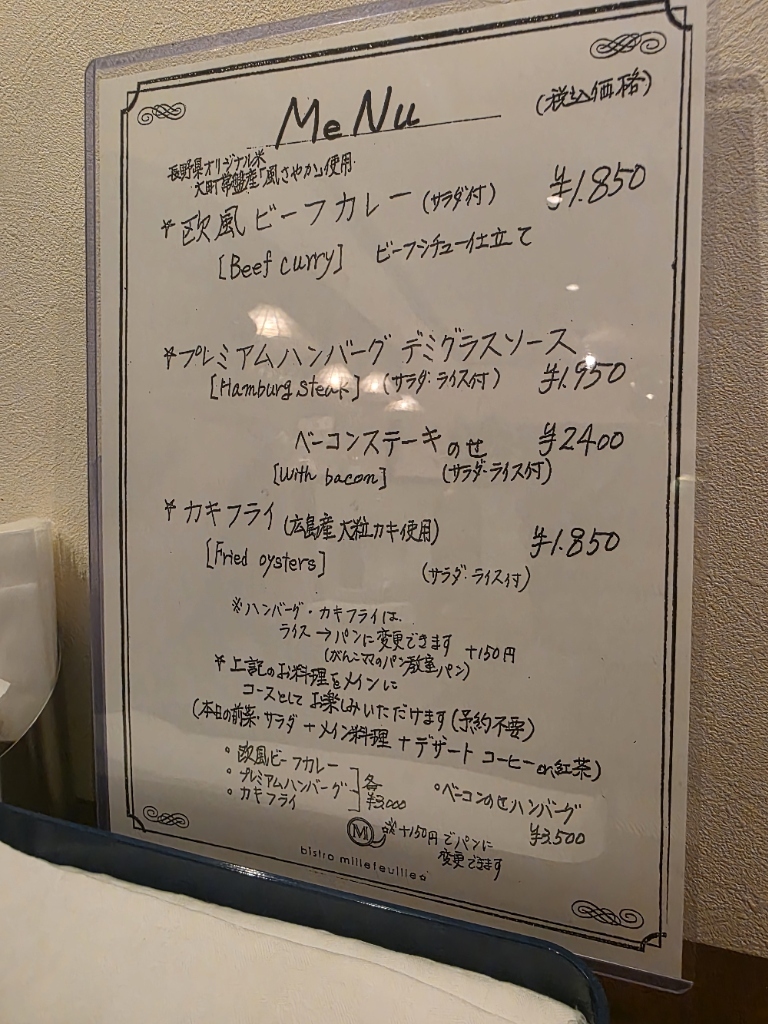 MeNu
(税込価格)
長野県オリジナル米
大町常盤産「風さやか」使用
☆欧風ビーフカレー(サラダ付) ¥1.850
[Beef curry] ビーフシチュー仕立て
☆プレミアムハンバーグ デミグラスソース
[Hamburg steak] (サラダ・ライス付) ¥1.950
ベーコンステーキのせ ¥2400
[With bacon] (サラダ・ライス付)
☆カキフライ(広島産大粒カキ使用) ¥1.850
[Fried oysters] (サラダ・ライス付)
※ハンバーグ・カキフライは
ライス→パンに変更できます +150円
(がんこママのパン教室パン)
☆上記のお料理をメインに
コースとしてお楽しみいただけます(予約不要)
(本日の前菜・サラダ+メイン料理+デザート コーヒーor紅茶)
・欧風ビーフカレー
・プレミアムハンバーグ
・カキフライ
各
¥3,000
・ベーコンのせハンバーグ
¥3.500
※+150円でパンに
変更できます
M
bistro millefeuille